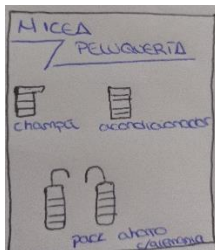 MICEA
PELUQUERÍA
champú acondicionador
pack ahorro
c/alemania